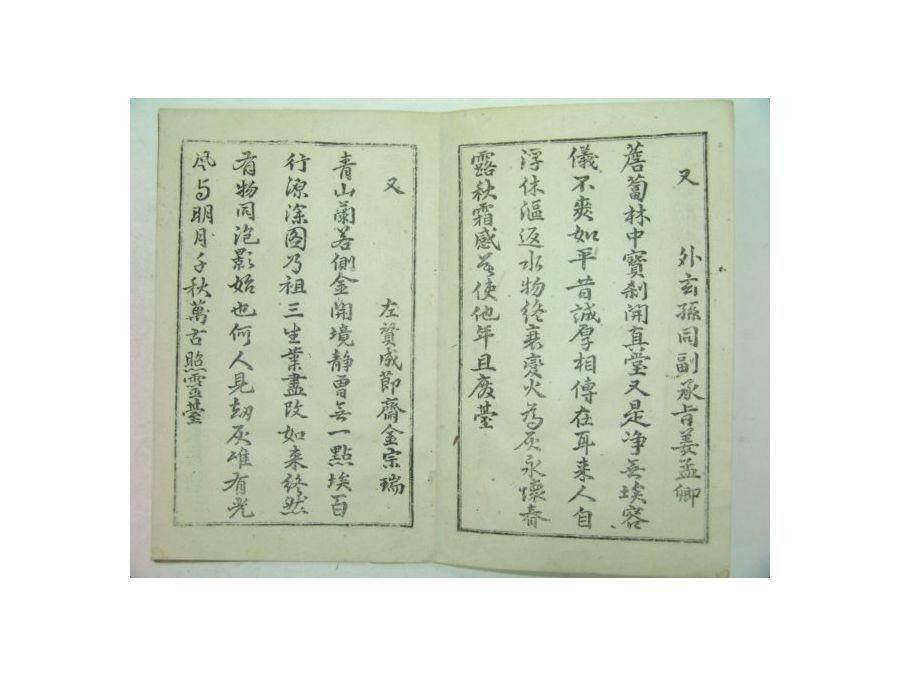 又 外玄孫同副承旨姜孟卿
薝蔔林中寶刹開真堂又是净無埃容
儀不爽如平昔誠厚相傳在耳来人自
浮休漚返水物終衰变火為灰永懷春
露秋霜感莫使他年且廢臺
又 左贊成節齋金宗瑞
青山蘭若側金開境静曾無一點埃百
行源深乃祖三生業盡改如来終然
有物同泡影始也何人見劫灰唯有光
風与明月千秋萬古照靈臺